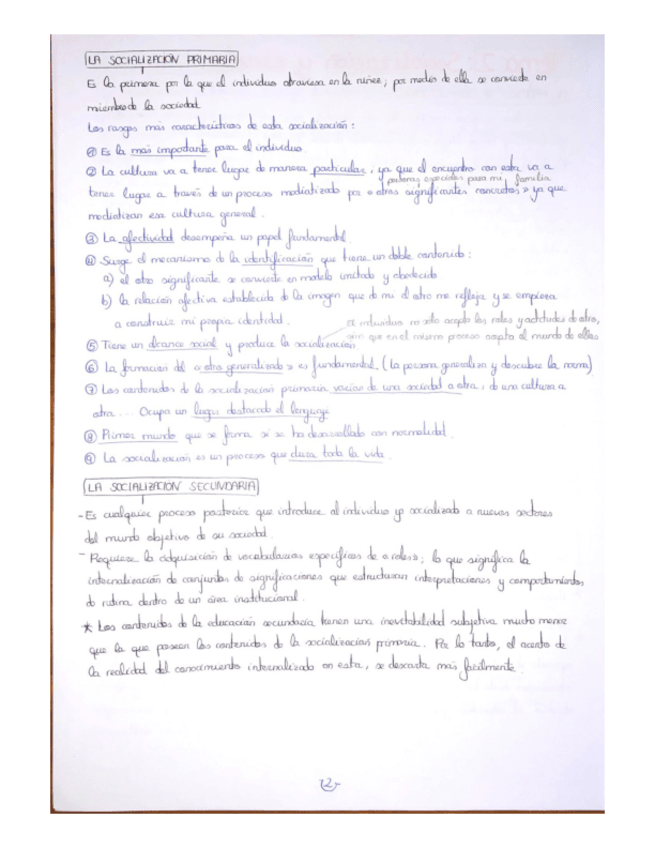 LA SOCIALIZACIÓN PRIMARIA
Es la primera por la que el individuo atraviesa en la niñez; por medio de ella se convierte en
miembro de la sociedad
Los rasgos más característicos de esta socialización:
① Es la más importante para el individuo
② La cultura va a tener lugar de manera particular, ya que el encuentro con esta va a
para mi, familia
tener lugar a través de un proceso mediatizado por «otros significantes concretos» ya que
mediatizan esa cultura general.
③ La afectividad desempeña un papel fundamental
④ Surge el mecanismo de la identificación que tiene un doble contenido:
a) el otro significante se convierte en modelo imitado y obedecido
b) la relación afectiva establecida da la imagen que de mi el otro me refleja y se empieza
a construir mi propia identidad.
El individuo no solo acepta los roles y actitudes de otro,
sino que en el mismo proceso acepta el mundo de ellos
⑤ Tiene un alcance social y produce la socialización
⑥ La formación del «otro generalizado» es fundamental. (La persona generaliza y descubre la norma)
⑦ Los contenidos de la socialización primaria varían de una sociedad a otra, de una cultura a
otra... Ocupa un lugar destacado el lenguaje
⑧ Primer mundo que se forma si se ha desarrollado con normalidad.
⑨ La socialización es un proceso que dura toda la vida.
LA SOCIALIZACIÓN SECUNDARIA
- Es cualquier proceso posterior que introduce al individuo ya socializado a nuevos sectores
del mundo objetivo de su sociedad.
- Requiere la adquisición de vocabularios específicos de «roles»; lo que significa la
internalización de conjuntos de significaciones que estructuran interpretaciones y comportamientos,
de rutina dentro de un área institucional.
* Los contenidos de la educación secundaria tienen una inevitabilidad subjetiva mucho menor
que la que poseen los contenidos de la socialización primaria. Por lo tanto, el acento de
la realidad del conocimiento internalizado en esta, se descarta más fácilmente.
2